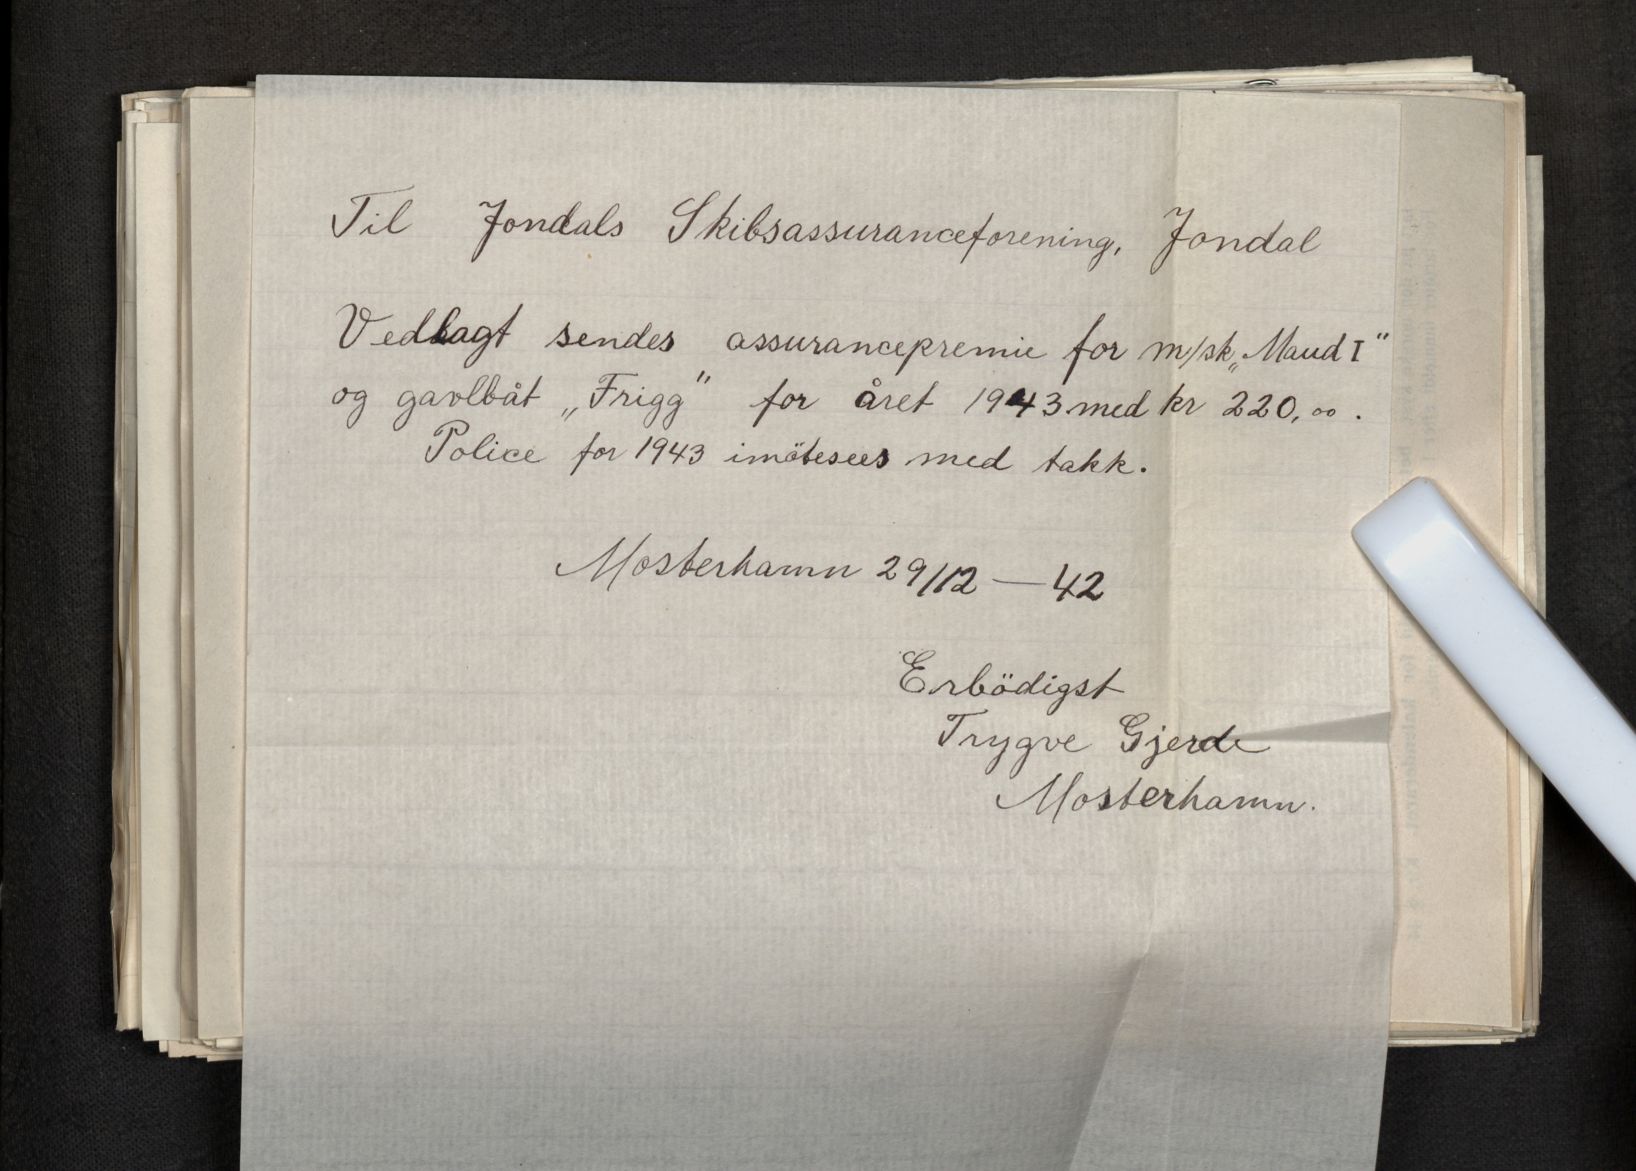 Til Jondals Skibsassuranceforening, Jondal
Vedlagt sendes assurancepremie for m/sk „Maud I"
og gavlbåt „Frigg" for året 1943 med kr 220,00.
Police for 1943 imötesees med takk.
Mosterhamn 29/12 — 42
Erbödigst
Trygve Gjerde
Mosterhamn.